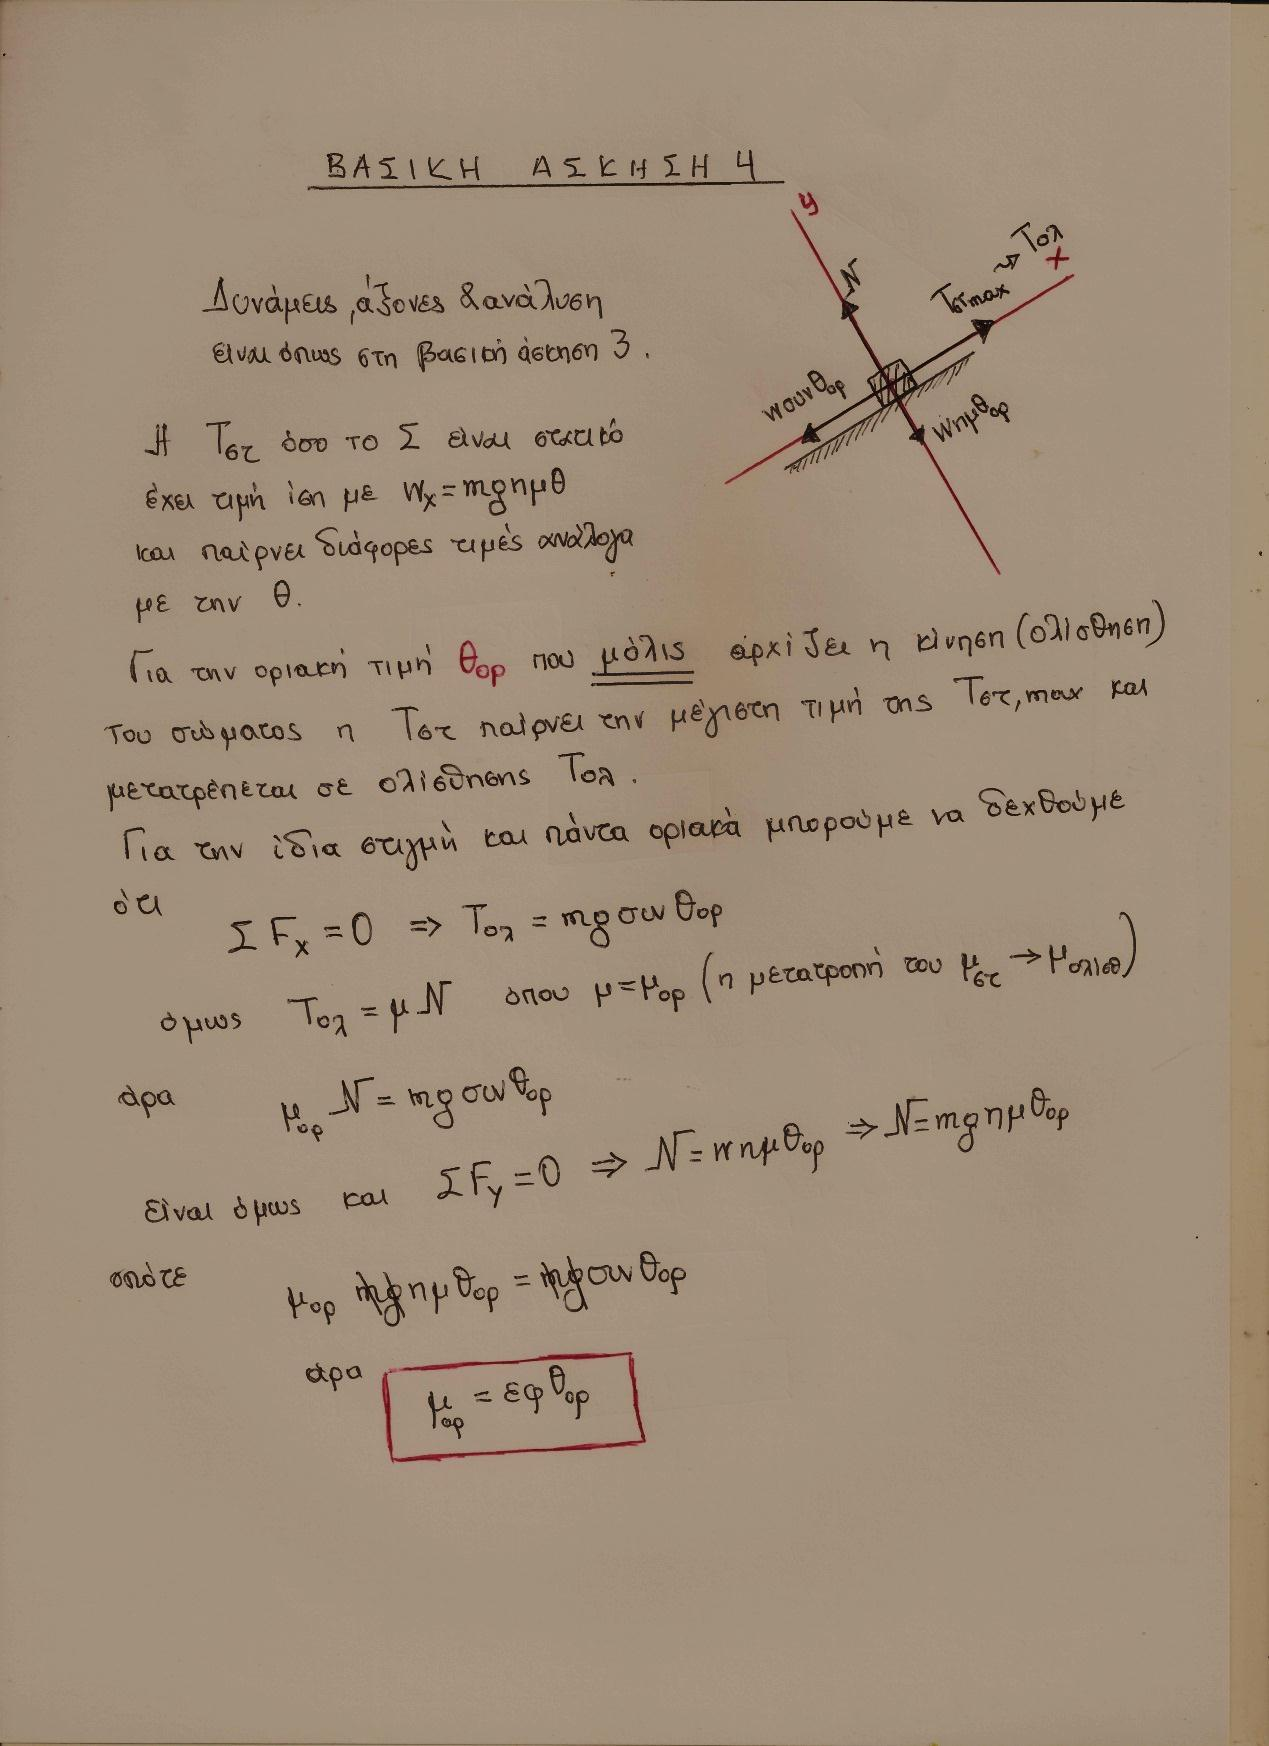 ΒΑΣΙΚΗ ΑΣΚΗΣΗ 4
y
N
Tστmax ⇝ Tολ
x
wσυνθορ
wημθορ
Δυνάμεις, άξονες & ανάλυση
είναι όπως στη βασική άσκηση 3.
Η Τστ όσο το Σ είναι στατικό
έχει τιμή ίση με wx = mgημθ
και παίρνει διάφορες τιμές ανάλογα
με την θ.
Για την οριακή τιμή θορ που μόλις αρχίζει η κίνηση (ολίσθηση)
του σώματος η Τστ παίρνει την μέγιστη τιμή της Τστ,max και
μετατρέπεται σε ολίσθησης Τολ.
Για την ίδια στιγμή και πάντα οριακά μπορούμε να δεχθούμε
ότι
ΣFx = 0 ⇒ Τολ = mgσυνθορ
όμως Τολ = μN όπου μ=μορ (η μετατροπή του μστ → μολισθ)
άρα μορ N = mgσυνθορ
είναι όμως και ΣFy = 0 ⇒ N = wημθορ ⇒ N = mgημθορ
οπότε μορ mgημθορ = mgσυνθορ
άρα μορ = εφθορ